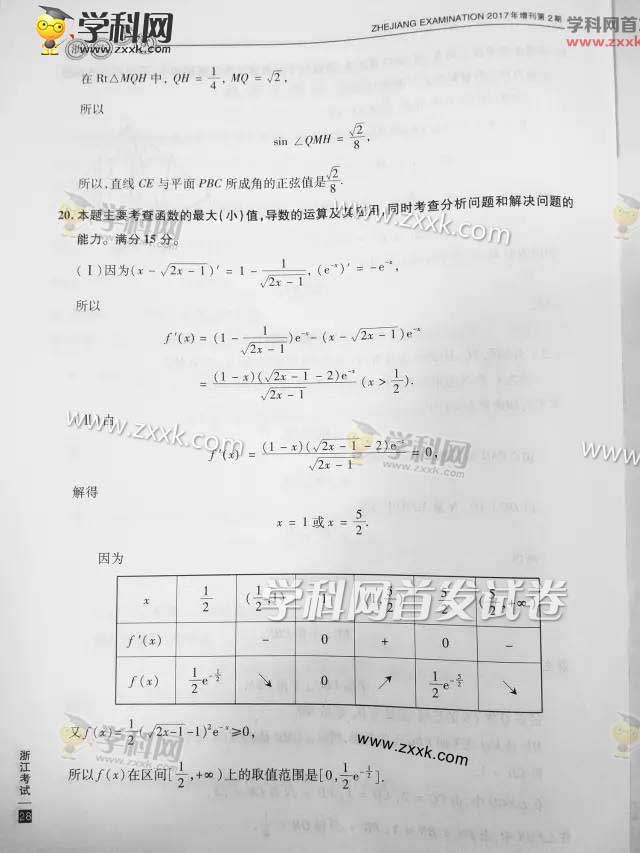 ZHEJIANG EXAMINATION 2017年增刊第2期
学科网
学科网首
www.zxx
在 Rt△MQH 中, QH = 1/4, MQ = √2,
所以
sin ∠QMH = √2/8,
所以,直线 CE 与平面 PBC 所成角的正弦值是 √2/8.
20. 本题主要考查函数的最大(小)值,导数的运算及其应用,同时考查分析问题和解决问题的
能力。满分 15 分。
(Ⅰ)因为(x - √(2x - 1))′ = 1 - 1/√(2x - 1), (e^(-x))′ = -e^(-x),
所以
f′(x) = (1 - 1/√(2x - 1))e^(-x) - (x - √(2x - 1))e^(-x)
= (1 - x)(√(2x - 1) - 2)e^(-x)/√(2x - 1) (x > 1/2).
(Ⅱ)由
f′(x) = (1 - x)(√(2x - 1) - 2)e^(-x)/√(2x - 1) = 0,
解得
x = 1 或 x = 5/2.
因为
x 1/2 (1/2,1) 1 (1,5/2) 5/2 (5/2,+∞)
f′(x) - 0 + 0 -
f(x) 1/2 e^(-1/2) ↘ 0 ↗ 1/2 e^(-5/2) ↘
又 f(x) = 1/2(√(2x-1) - 1)²e^(-x) ≥ 0,
所以 f(x) 在区间[1/2,+∞)上的取值范围是[0, 1/2 e^(-1/2)].
浙江考试
28
www.zxxk.com
学科网
zxxk.com
www.zx
学科网首发试卷
www.zxxk.com
学科网
zxxk.com